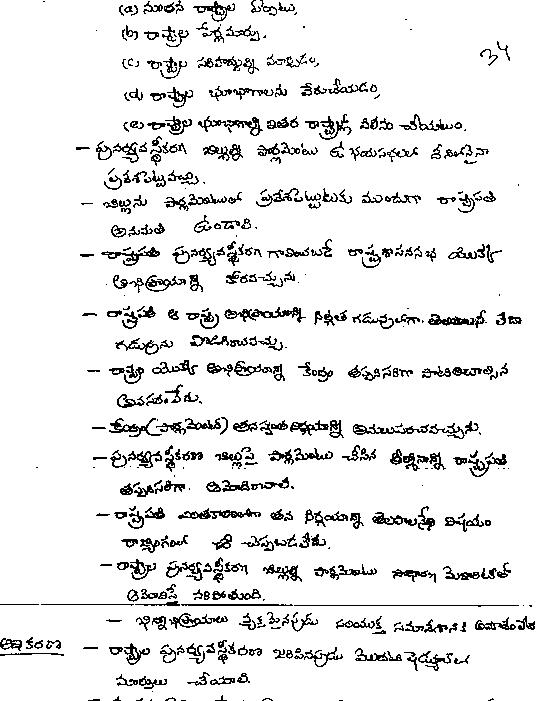 (a) నూతన రాష్ట్రాల ఏర్పాటు,
(b) రాష్ట్రాల పేర్లమార్పు,
34
(c) రాష్ట్రాల సరిహద్దుల్ని మార్చడం,
(d) రాష్ట్రాల భూభాగాలను వేరుచేయడం,
(e) రాష్ట్రాల భూభాగాల్ని ఇతర రాష్ట్రాల్లో విలీనం చేయటం.
- పునర్వ్యవస్థీకరణ బిల్లుల్ని పార్లమెంటు ఉభయసభలలో దేనిలోనైనా
ప్రవేశపెట్టవచ్చు.
- బిల్లును పార్లమెంటులో ప్రవేశపెట్టుటకు ముందుగా రాష్ట్రపతి
అనుమతి ఉండాలి.
- రాష్ట్రపతి పునర్వ్యవస్థీకరణ గావించబడే రాష్ట్రశాసనసభ యొక్క
అభిప్రాయాన్ని కోరవచ్చును.
- రాష్ట్రపతి ఆ రాష్ట్ర అభిప్రాయాన్ని నిర్ణీత గడువులోగా తెలపాలనీ లేదా
గడువును పొడిగించవచ్చు.
- రాష్ట్రాల యొక్క అభిప్రాయాన్ని కేంద్రం తప్పనిసరిగా పాటించాల్సిన
అవసరంలేదు.
- కేంద్రం (పార్లమెంట్) తన స్వంత నిర్ణయాన్ని అమలుపరచవచ్చును.
- పునర్వ్యవస్థీకరణ బిల్లుపై పార్లమెంటు చేసిన తీర్మానాన్ని రాష్ట్రపతి
తప్పనిసరిగా ఆమోదించాలి.
- రాష్ట్రపతి ఎంతకాలంలోగా తన నిర్ణయాన్ని తెలపాలన్నది విషయం
రాజ్యాంగంలో చెప్పబడలేదు.
- రాష్ట్రాల పునర్వ్యవస్థీకరణ బిల్లుల్ని పార్లమెంటు సాధారణ మెజారిటీతో
ఆమోదిస్తే సరిపోతుంది.
- భిన్నాభిప్రాయాలు వ్యక్తమైనప్పుడు సంయుక్త సమావేశానికి అవకాశంలేదు
అధికరణ - రాష్ట్రాల పునర్వ్యవస్థీకరణ జరిపినప్పుడు మొదటి షెడ్యూల్‌లో
మార్పులు చేయాలి.